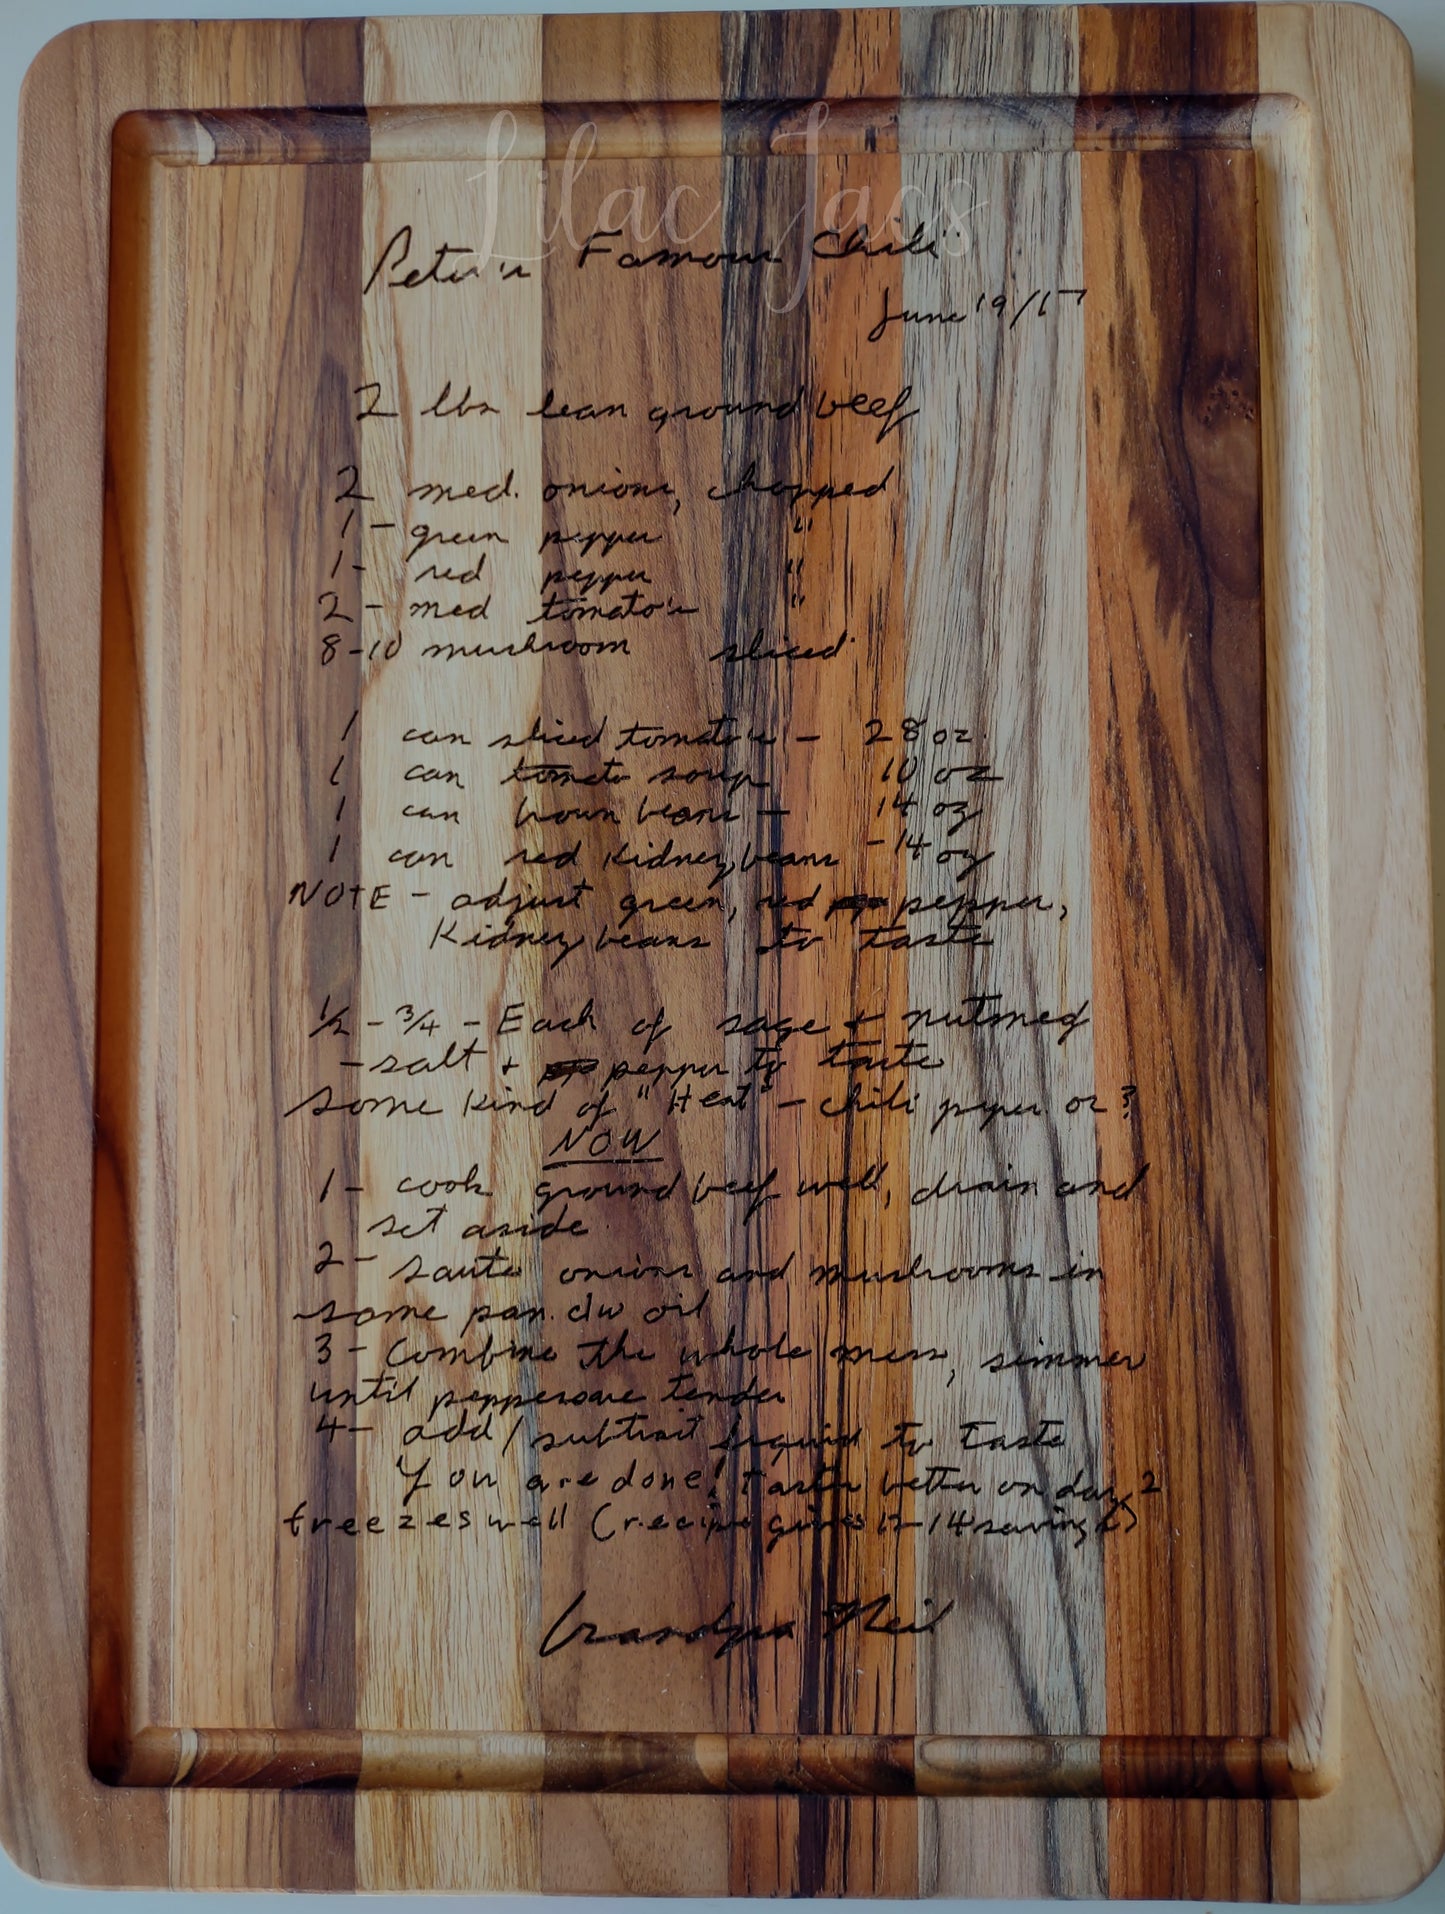 Lilac Jacs
Peter's Famous Chili
June 19/17
2 lbs lean ground beef
2 med. onions, chopped
1 - green pepper "
1 - red pepper "
2 - med tomato's "
8-10 mushroom sliced
1 can sliced tomato's - 28 oz.
1 can tomato soup 10 oz
1 can brown beans - 14 oz
1 can red Kidney beans - 14 oz
NOTE - adjust green, red pepper,
Kidney beans to taste
1/2 - 3/4 - Each of sage + nutmeg
- salt + pepper to taste
some kind of "Heat" - chili pepper or?
NOW
1 - cook ground beef well, drain and
set aside
2 - saute onions and mushrooms in
same pan. c/w oil
3 - Combine the whole mess, simmer
until peppers are tender
4 - add/subtract liquid to taste
You are done! tastes better on day 2
freezes well (recipe gives 12-14 savings)
Grandpa Neil